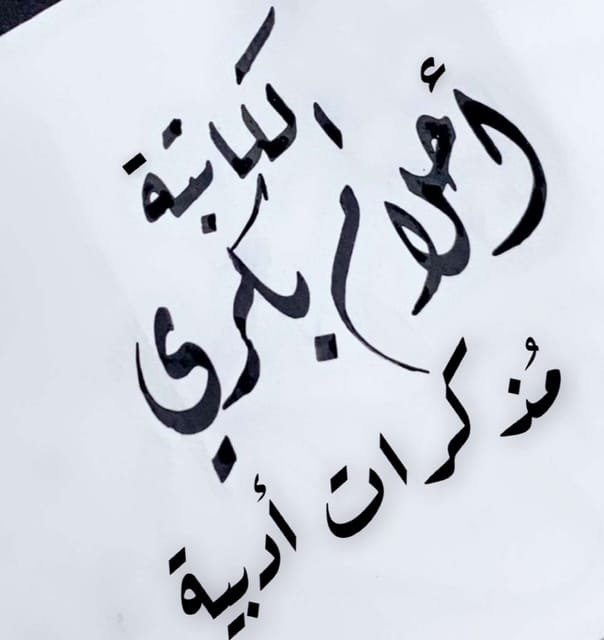 الكاتبة
أحلام بكري
مُذكرات أدبية